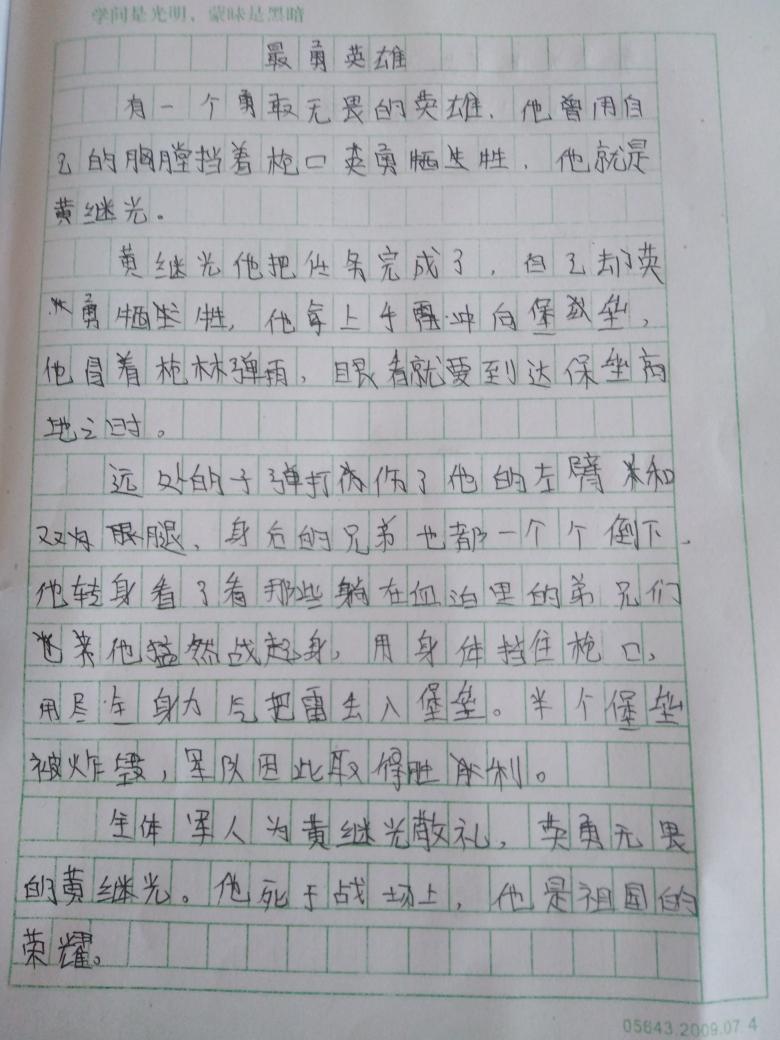 学问是光明，蒙昧是黑暗
最勇英雄
有一个勇敢无畏的英雄，他曾用自
己的胸膛挡着枪口英勇牺生牲，他就是
黄继光。
黄继光他把任务完成了，自己却英
勇牺牲，他拿上手雷冲向堡垒，
他冒着枪林弹雨，眼看就要到达保垒高
地之时。
远处的子弹打伤了他的左臂和
双腿，身后的兄弟也都一个个倒下，
他转身看了看那些躺在血泊里的弟兄们
他猛然战起身，用身体挡住枪口，
用尽全身力气把雷去入堡垒。半个堡垒
被炸毁，军队因此取得胜利。
全体军人为黄继光敬礼，英勇无畏
的黄继光。他死于战场上，他是祖国的
荣耀。
05643.2009.07.4